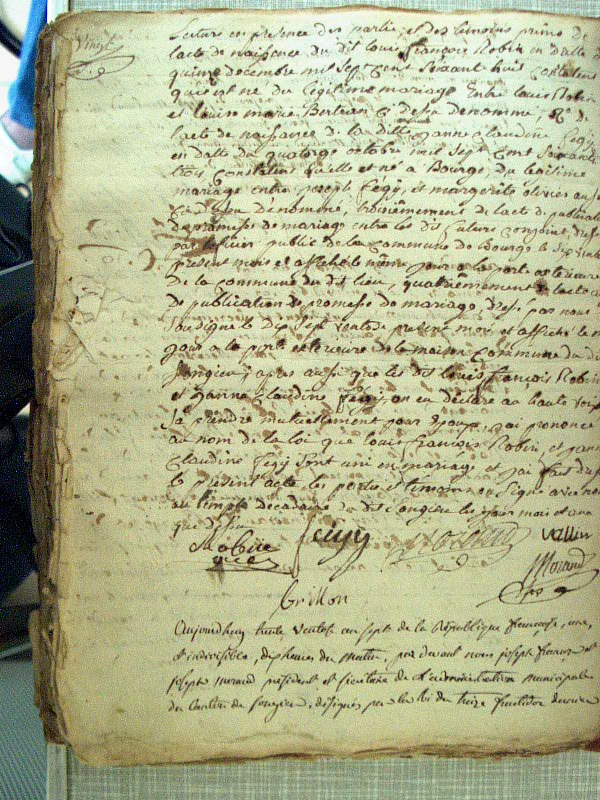 Vingt
Lecture en presence des partie, et des temoins primo de
lacte de naissence du dit louis françois Robin en datte du
quinze decembre mil sept cent soixant huit constatent
quil est né du legitime mariage entre louis Robin
et louise marie Bertrian ci desu denommé, 2° de
lacte de naissance de la ditte janne Claudine Fégÿ
en datte du quatorze octobre mil sept cent soixante
trois constatent quelle et né a Bourge, du legitime
mariage entre joseph Fégÿ, et margerite olivier au
denommé, troisièmement de lact de publication
de promesse de mariage entre les dit futurs conjoint dressé
par lofficier public de la commune de Bourge le
present mois et affiché le même jour a la porte exterieure
de la commune du dit lieu, quatriemement de lacte
de publication de promesse de mariage, dressé par nous
soussigné le dix sept ventose present mois et affiché le même
jour a la porte exterieure de la maison commune du dit
Songieu; apres aussi que les dit louis françois Robin
et janne Claudine Fégÿ, on eu declaré au haute voix
se prendre mutuellement pour Epoux, jai prononcé
au nom de la loi que louis françois Robin, et janne
Claudine Fégÿ sont uni en mariage, et jai fait
le present acte les partie et temoin on signé avec nous
au temple decadaire de dit Songieu les jour mois et an
que dessus
fegy Morand vallin
Morand
Grillon
Aujourdhuy trente ventose an sept de la République française, une,
et indivisible, dix heures du matin, par devant nous joseph
joseph morand président et secretaire de l'administration municipale
du Canton de songieu, désignés par la loi du treize fructidor dernier